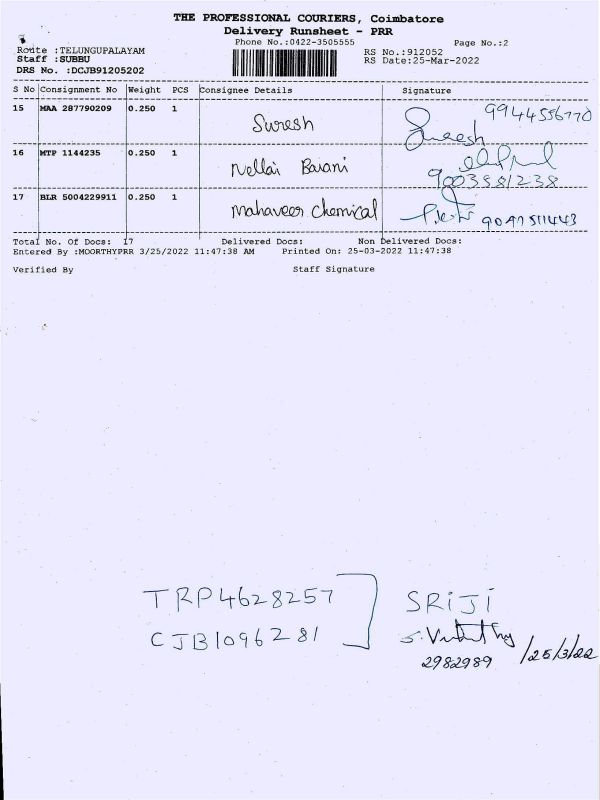 THE PROFESSIONAL COURIERS, Coimbatore
Delivery Runsheet - PRR
Phone No.:0422-3505555 Page No.:2
Route :TELUNGUPALAYAM RS No.:912052
Staff :SUBBU RS Date:25-Mar-2022
DRS No. :DCJB91205202
S No Consignment No Weight PCS Consignee Details Signature
15 MAA 287790209 0.250 1 Suresh Suresh 9944556770
16 MTP 1144235 0.250 1 Nellai Baiani 9003981238
17 BLR 5004229911 0.250 1 Mahaveer Chemical 9047511443
Total No. Of Docs: 17 Delivered Docs: Non Delivered Docs:
Entered By :MOORTHYPRR 3/25/2022 11:47:38 AM Printed On: 25-03-2022 11:47:38
Verified By Staff Signature
TRP4628257 SRiJi
CJB1096281
2982989 /25/3/22